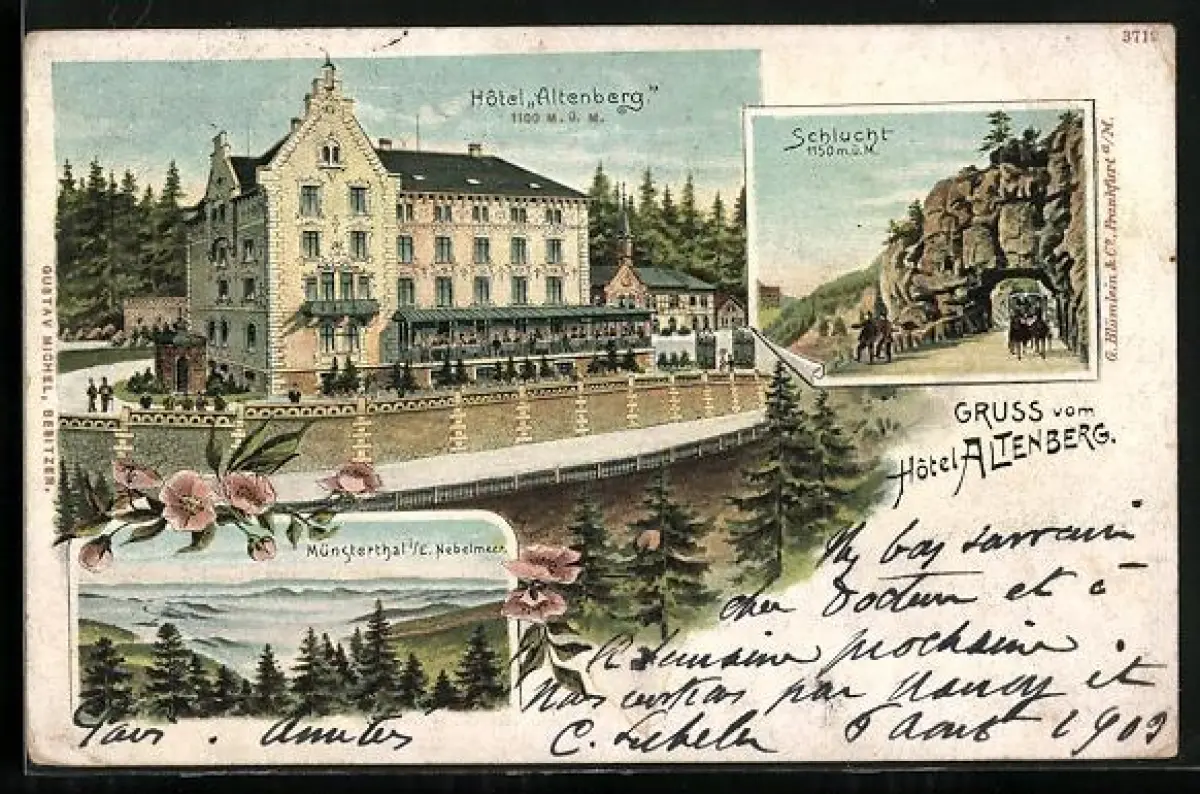 3719
Hôtel „Altenberg."
1100 M. Ü. M.
Schlucht
1150 m. ü. M.
G. Blümlein & Co., Frankfurt a/M.
GUSTAV MICHEL, BEBITZER.
GRUSS vom
Hôtel ALTENBERG.
Münsterthal i/E. Nebelmeer.
cher Docteur et à
semaine prochaine
par Nancy et
Amitiés
C. 8 Aout 1903